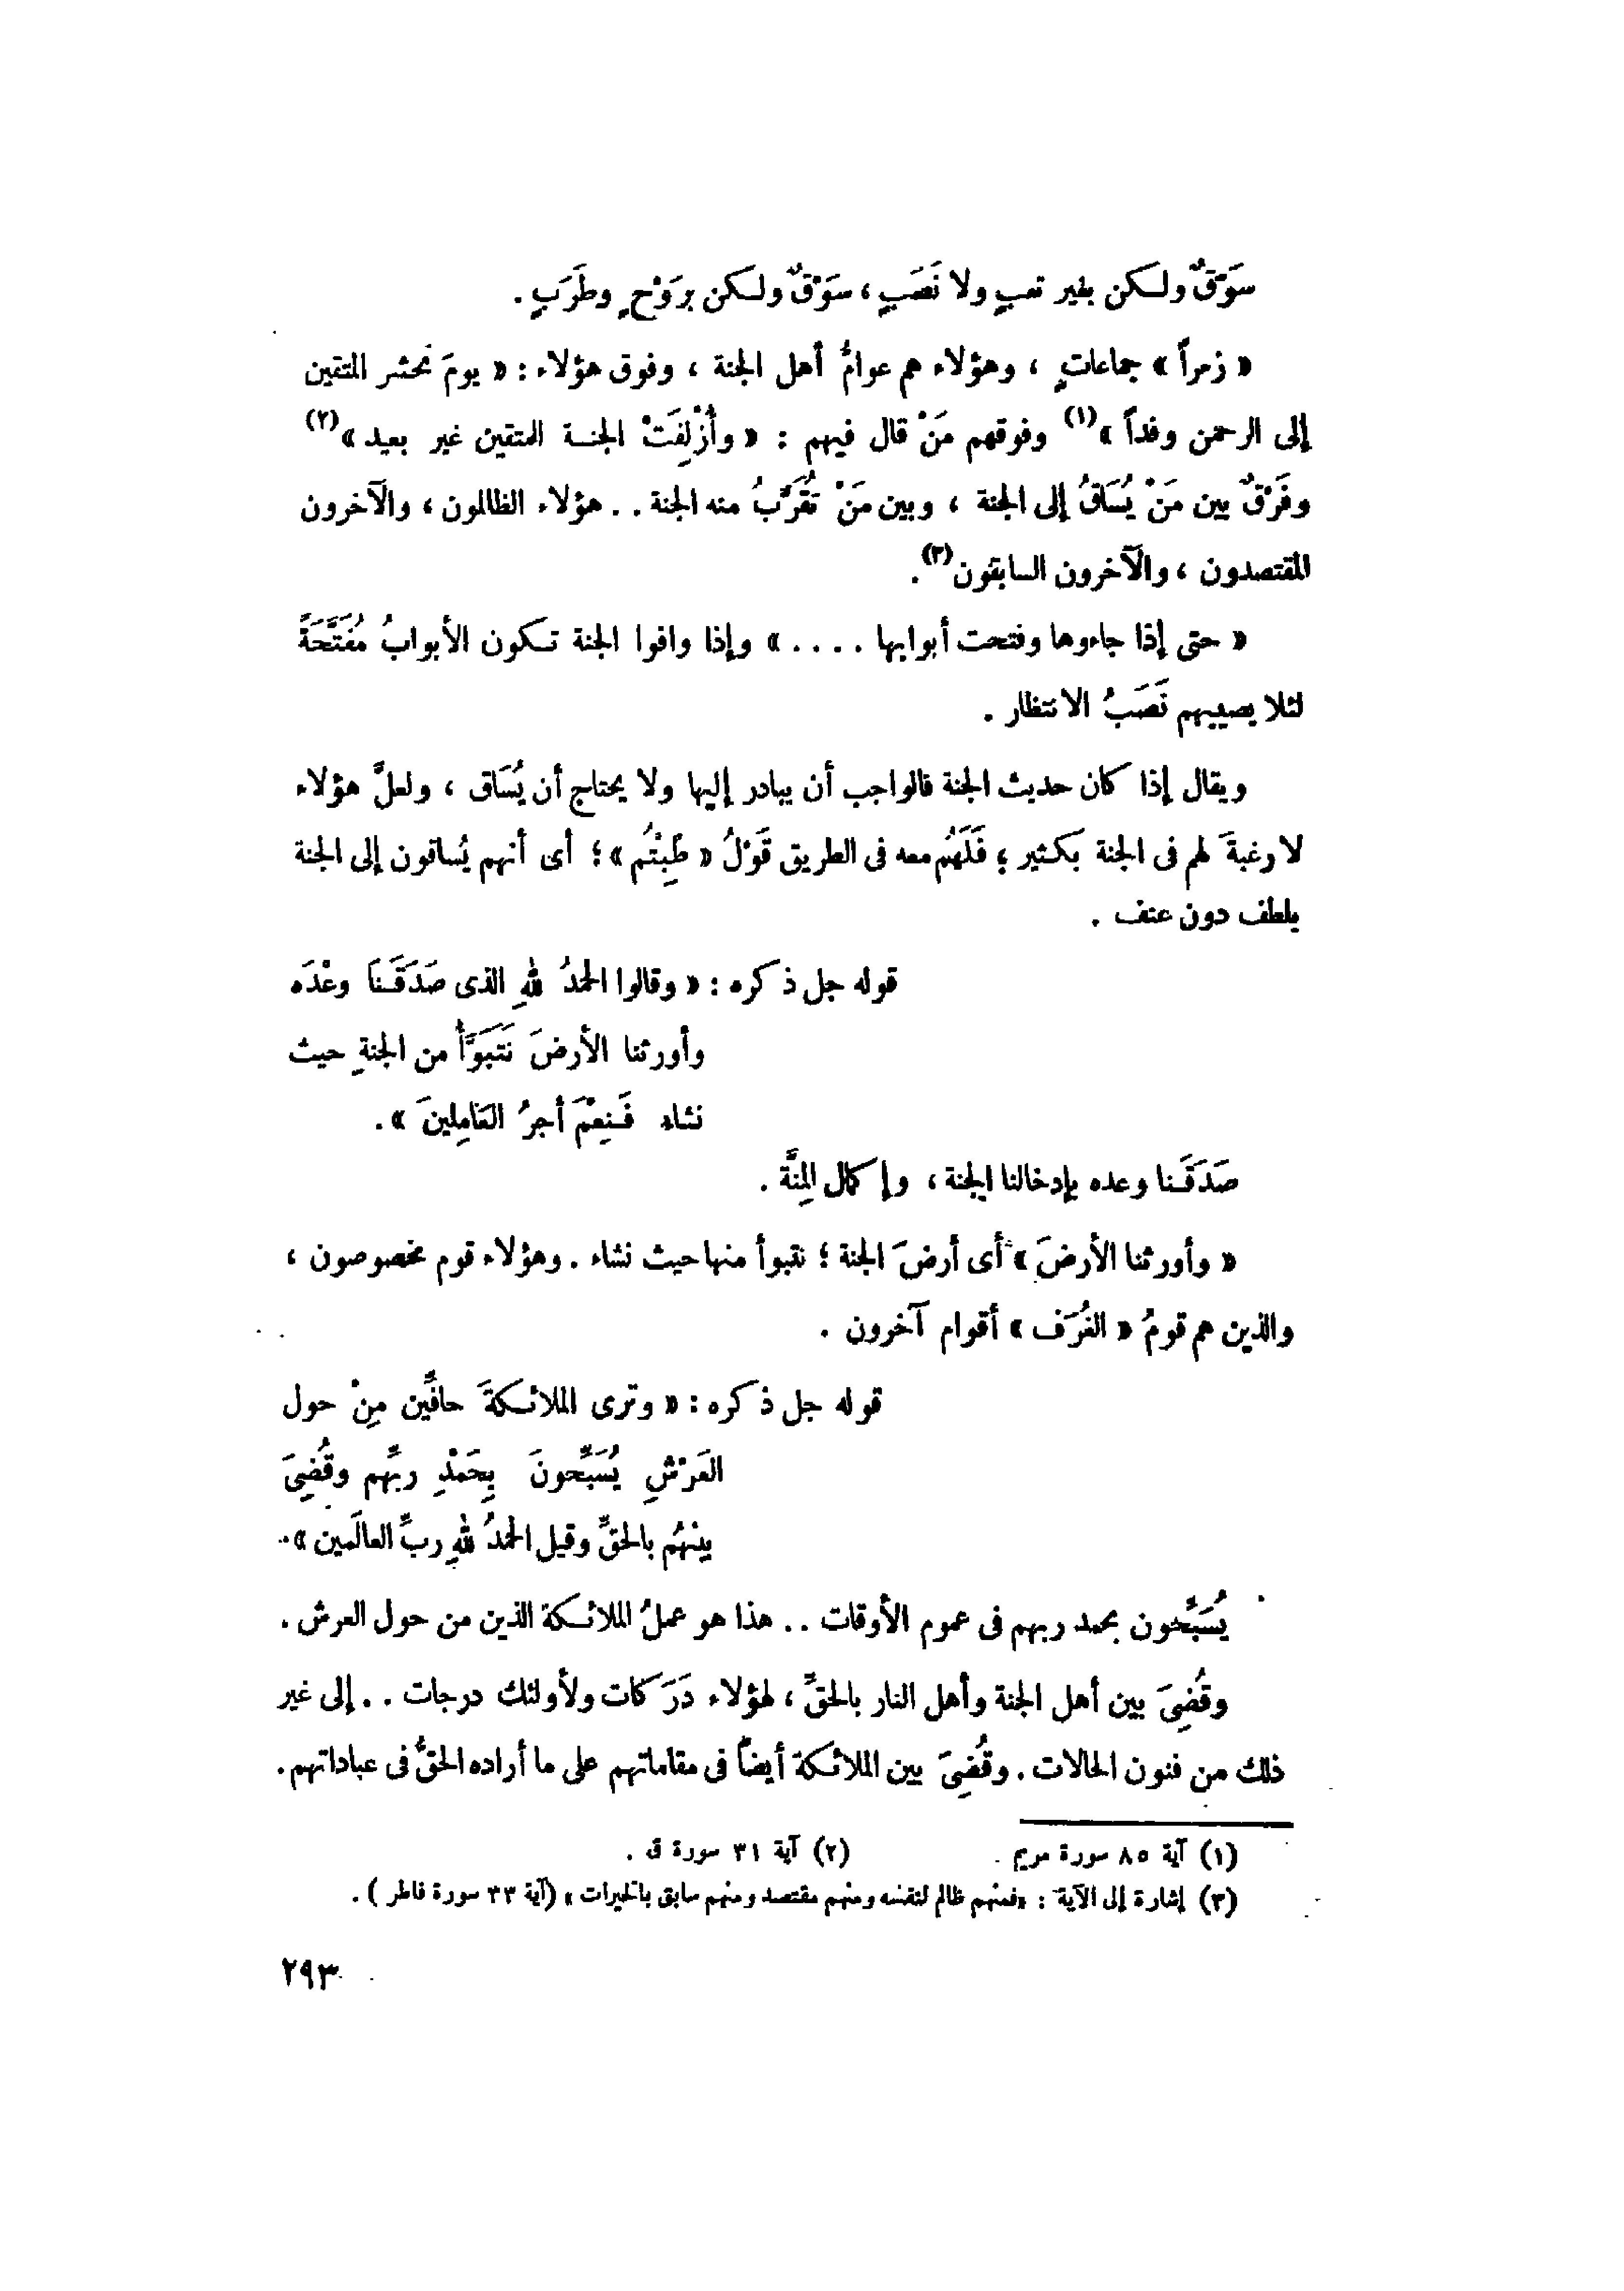 سَوْقٌ ولكن بغير تعبٍ ولا نَصَبٍ ، سَوْقٌ ولكن برَوْحٍ وطَرَبٍ .
« زمراً » جماعاتٍ ، وهؤلاء هم عوامُّ أهل الجنة ، وفوق هؤلاء : « يومَ نحشر المتقين
إلى الرحمن وفداً »(١) وفوقهم مَنْ قال فيهم : « وأُزْلِفَتْ الجنة المتقين غير بعيد »(٢)
وفَرْقٌ بين مَنْ يُسَاقُ إلى الجنة ، وبين مَنْ تُقَرَّبُ منه الجنة . . هؤلاء الظالمون ، والآخرون
المقتصدون ، والآخرون السابقون(٣) .
« حتى إذا جاءوها وفتحت أبوابها . . . . » وإذا وافوا الجنة تكون الأبوابُ مُفَتَّحَةً
لئلا يصيبهم نَصَبُ الانتظار .
ويقال إذا كان حديث الجنة فالواجب أن يبادر إليها ولا يحتاج أن يُسَاق ، ولعلَّ هؤلاء
لا رغبةَ لهم فى الجنة بكثير ؛ فَلَهُم معه فى الطريق قَوْلُ « طِبْتُم » ؛ أى أنهم يُساقون إلى الجنة
بلطف دون عنف .
قوله جل ذكره : « وقالوا الحمدُ للهِ الذى صَدَقَنَا وعْدَه
وأورثنا الأرضَ نَتَبَوَّأُ من الجنةِ حيث
نشاء فَنِعْمَ أجرُ العَامِلينَ » .
صَدَقَنا وعده بإدخالنا الجنة ، وإكمال المِنَّة .
« وأورثنا الأرضَ » أى أرضَ الجنة ؛ نتبوأ منها حيث نشاء . وهؤلاء قوم مخصوصون ،
والذين هم قومُ « الغُرَف » أقوام آخرون .
قوله جل ذكره : « وترى الملائكةَ حافِّين مِنْ حول
العَرْشِ يُسَبِّحونَ بِحَمْدِ ربِّهم وقُضِىَ
بينْهُم بالحقِّ وقيل الحمدُ للهِ ربِّ العالَمين » .
يُسَبِّحون بحمد ربهم فى عموم الأوقات . . هذا هو عملُ الملائكة الذين من حول العرش .
وقُضِىَ بين أهل الجنة وأهل النار بالحقِّ ، لهؤلاء دَرَكات ولأولئك درجات . . إلى غير
ذلك من فنون الحالات . وقُضِىَ بين الملائكة أيضاً فى مقاماتهم على ما أراده الحقُّ فى عباداتهم .
(١) آية ٨٥ سورة مريم . (٢) آية ٣١ سورة ق .
(٣) إشارة إلى الآية : «فمنهم ظالم لنفسه ومنهم مقتصد ومنهم سابق بالخيرات » (آية ٣٣ سورة فاطر ) .
٢٩٣